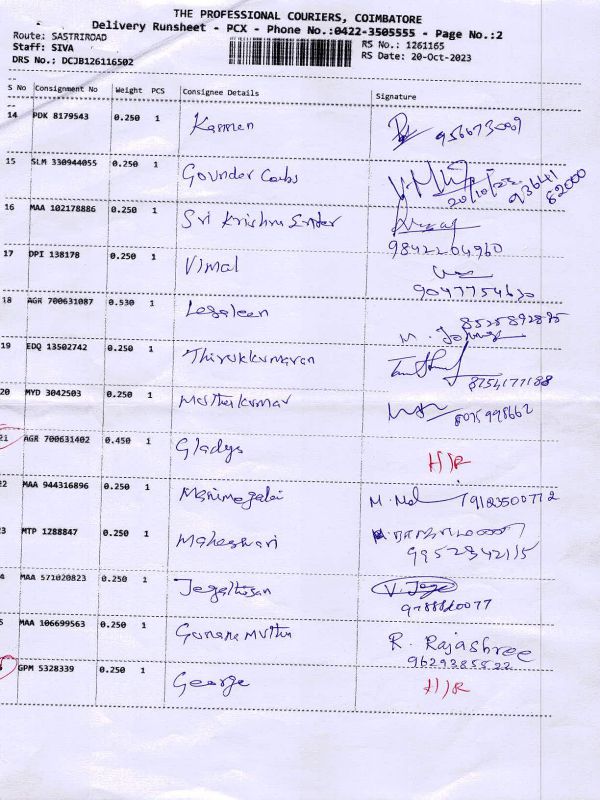 THE PROFESSIONAL COURIERS, COIMBATORE
Delivery Runsheet - PCX - Phone No.:0422-3505555 - Page No.:2
Route: SASTRIROAD
RS No.: 1261165
Staff: SIVA
RS Date: 20-Oct-2023
DRS No.: DCJB126116502
S No Consignment No Weight PCS Consignee Details Signature
14 PDK 8179543 0.250 1 Kannan
15 SLM 330944055 0.250 1 Govinder Cabs
20/10/23 93641
82000
16 MAA 102178886 0.250 1 Sri Krishna
9842204960
17 DPI 138178 0.250 1 Vimal
9047754630
18 AGR 700631087 0.530 1 Legaleen
19 EDQ 13502742 0.250 1 Thirukkumaran
8754177188
20 MYD 3042503 0.250 1 Muthukumar
8075998662
21 AGR 700631402 0.450 1 Gladys
22 MAA 944316896 0.250 1 Manimegalai
3 MTP 1288847 0.250 1 Maheswari
9952342115
4 MAA 571020823 0.250 1 Jegathesan
5 MAA 106699563 0.250 1 Gunana Muthu R. Rajashree
9629385522
GPM 5328339 0.250 1 George